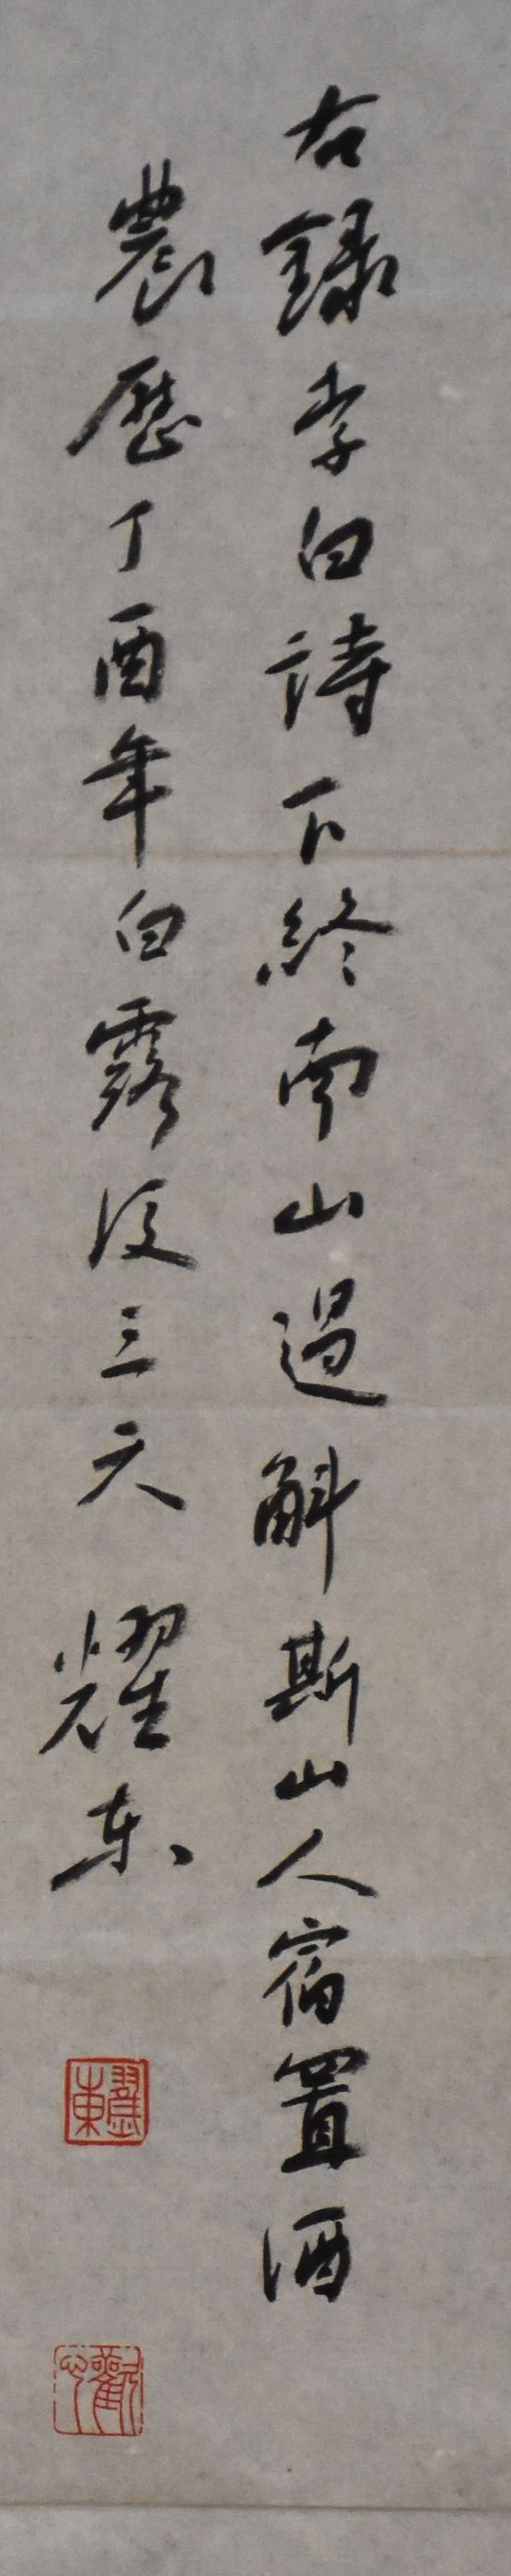 右錄李白詩下終南山過斛斯山人宿置酒
農歷丁酉年白露後三天 耀东
耀東
觀心